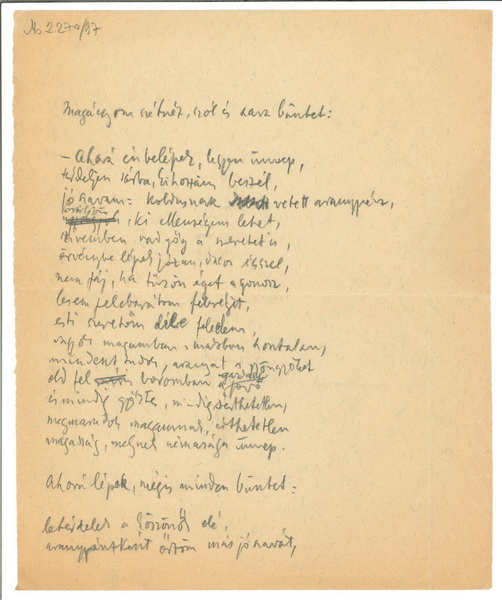 Ms 2270/97
Magányom szétnéz, szól és szava büntet:
– Ahová én belépek, legyen ünnep,
térdeljen sárba, ki hozzám beszél,
jó szavam: koldusnak vetett aranypénz,
, ki ellenségem lehet,
szívemben vad gőg a szeretet is,
örvénybe lépek józan, ésszel,
nem fáj, ha tűzön éget a gonosz,
lesem felebarátom
esti szeretőm délre feledem,
magamban s másban hontalan,
mindent tudó, aranyat s gyöngyöket
old fel boromban a jövő
és mindig győztes, mindig sérthetetlen,
megmaradok magamnak, érthetetlen
magasság, melynek némasága ünnep.
Ahová lépek, mégis minden büntet:
letérdelek a köszönők elé,
aranypénzként őrzöm más jó szavát,